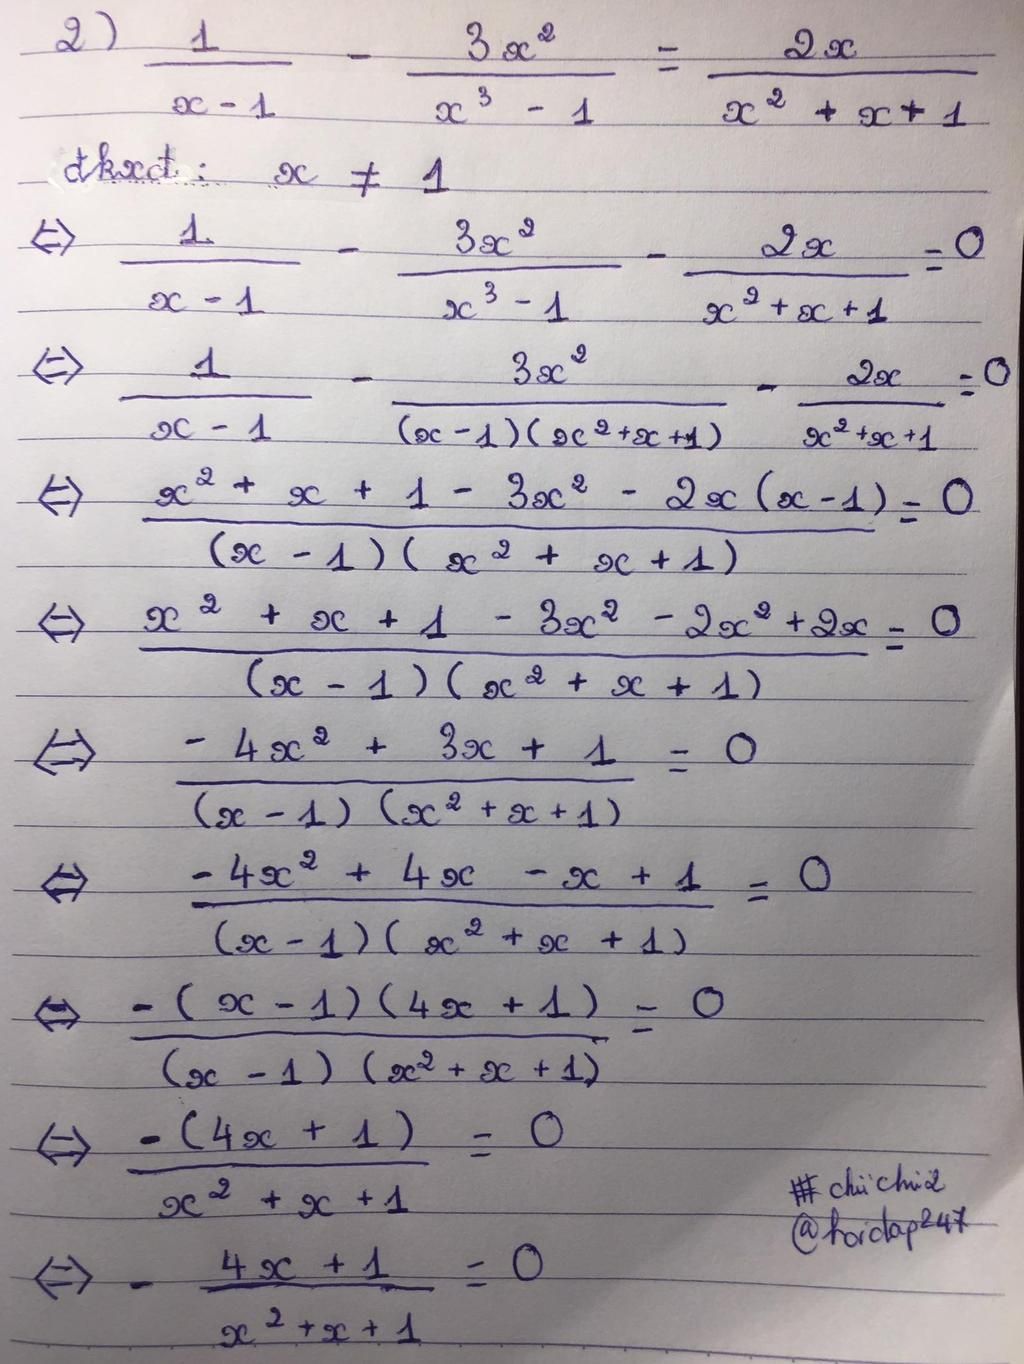 2) 1/(x - 1) - 3x²/(x³ - 1) = 2x/(x² + x + 1)
đkxđ: x ≠ 1
⇔ 1/(x - 1) - 3x²/(x³ - 1) - 2x/(x² + x + 1) = 0
⇔ 1/(x - 1) - 3x²/((x - 1)(x² + x + 1)) - 2x/(x² + x + 1) = 0
⇔ (x² + x + 1 - 3x² - 2x(x - 1))/((x - 1)(x² + x + 1)) = 0
⇔ (x² + x + 1 - 3x² - 2x² + 2x)/((x - 1)(x² + x + 1)) = 0
⇔ (-4x² + 3x + 1)/((x - 1)(x² + x + 1)) = 0
⇔ (-4x² + 4x - x + 1)/((x - 1)(x² + x + 1)) = 0
⇔ -(x - 1)(4x + 1)/((x - 1)(x² + x + 1)) = 0
⇔ -(4x + 1)/(x² + x + 1) = 0
# chiichii2
@hoidap247
⇔ - (4x + 1)/(x² + x + 1) = 0